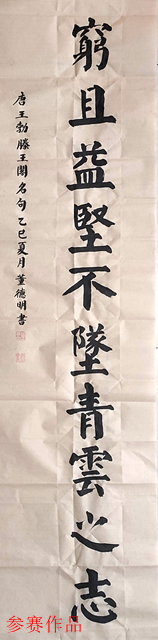 窮且益堅不墜青雲之志
唐王勃滕王閣名句乙巳夏月董德明書
参赛作品